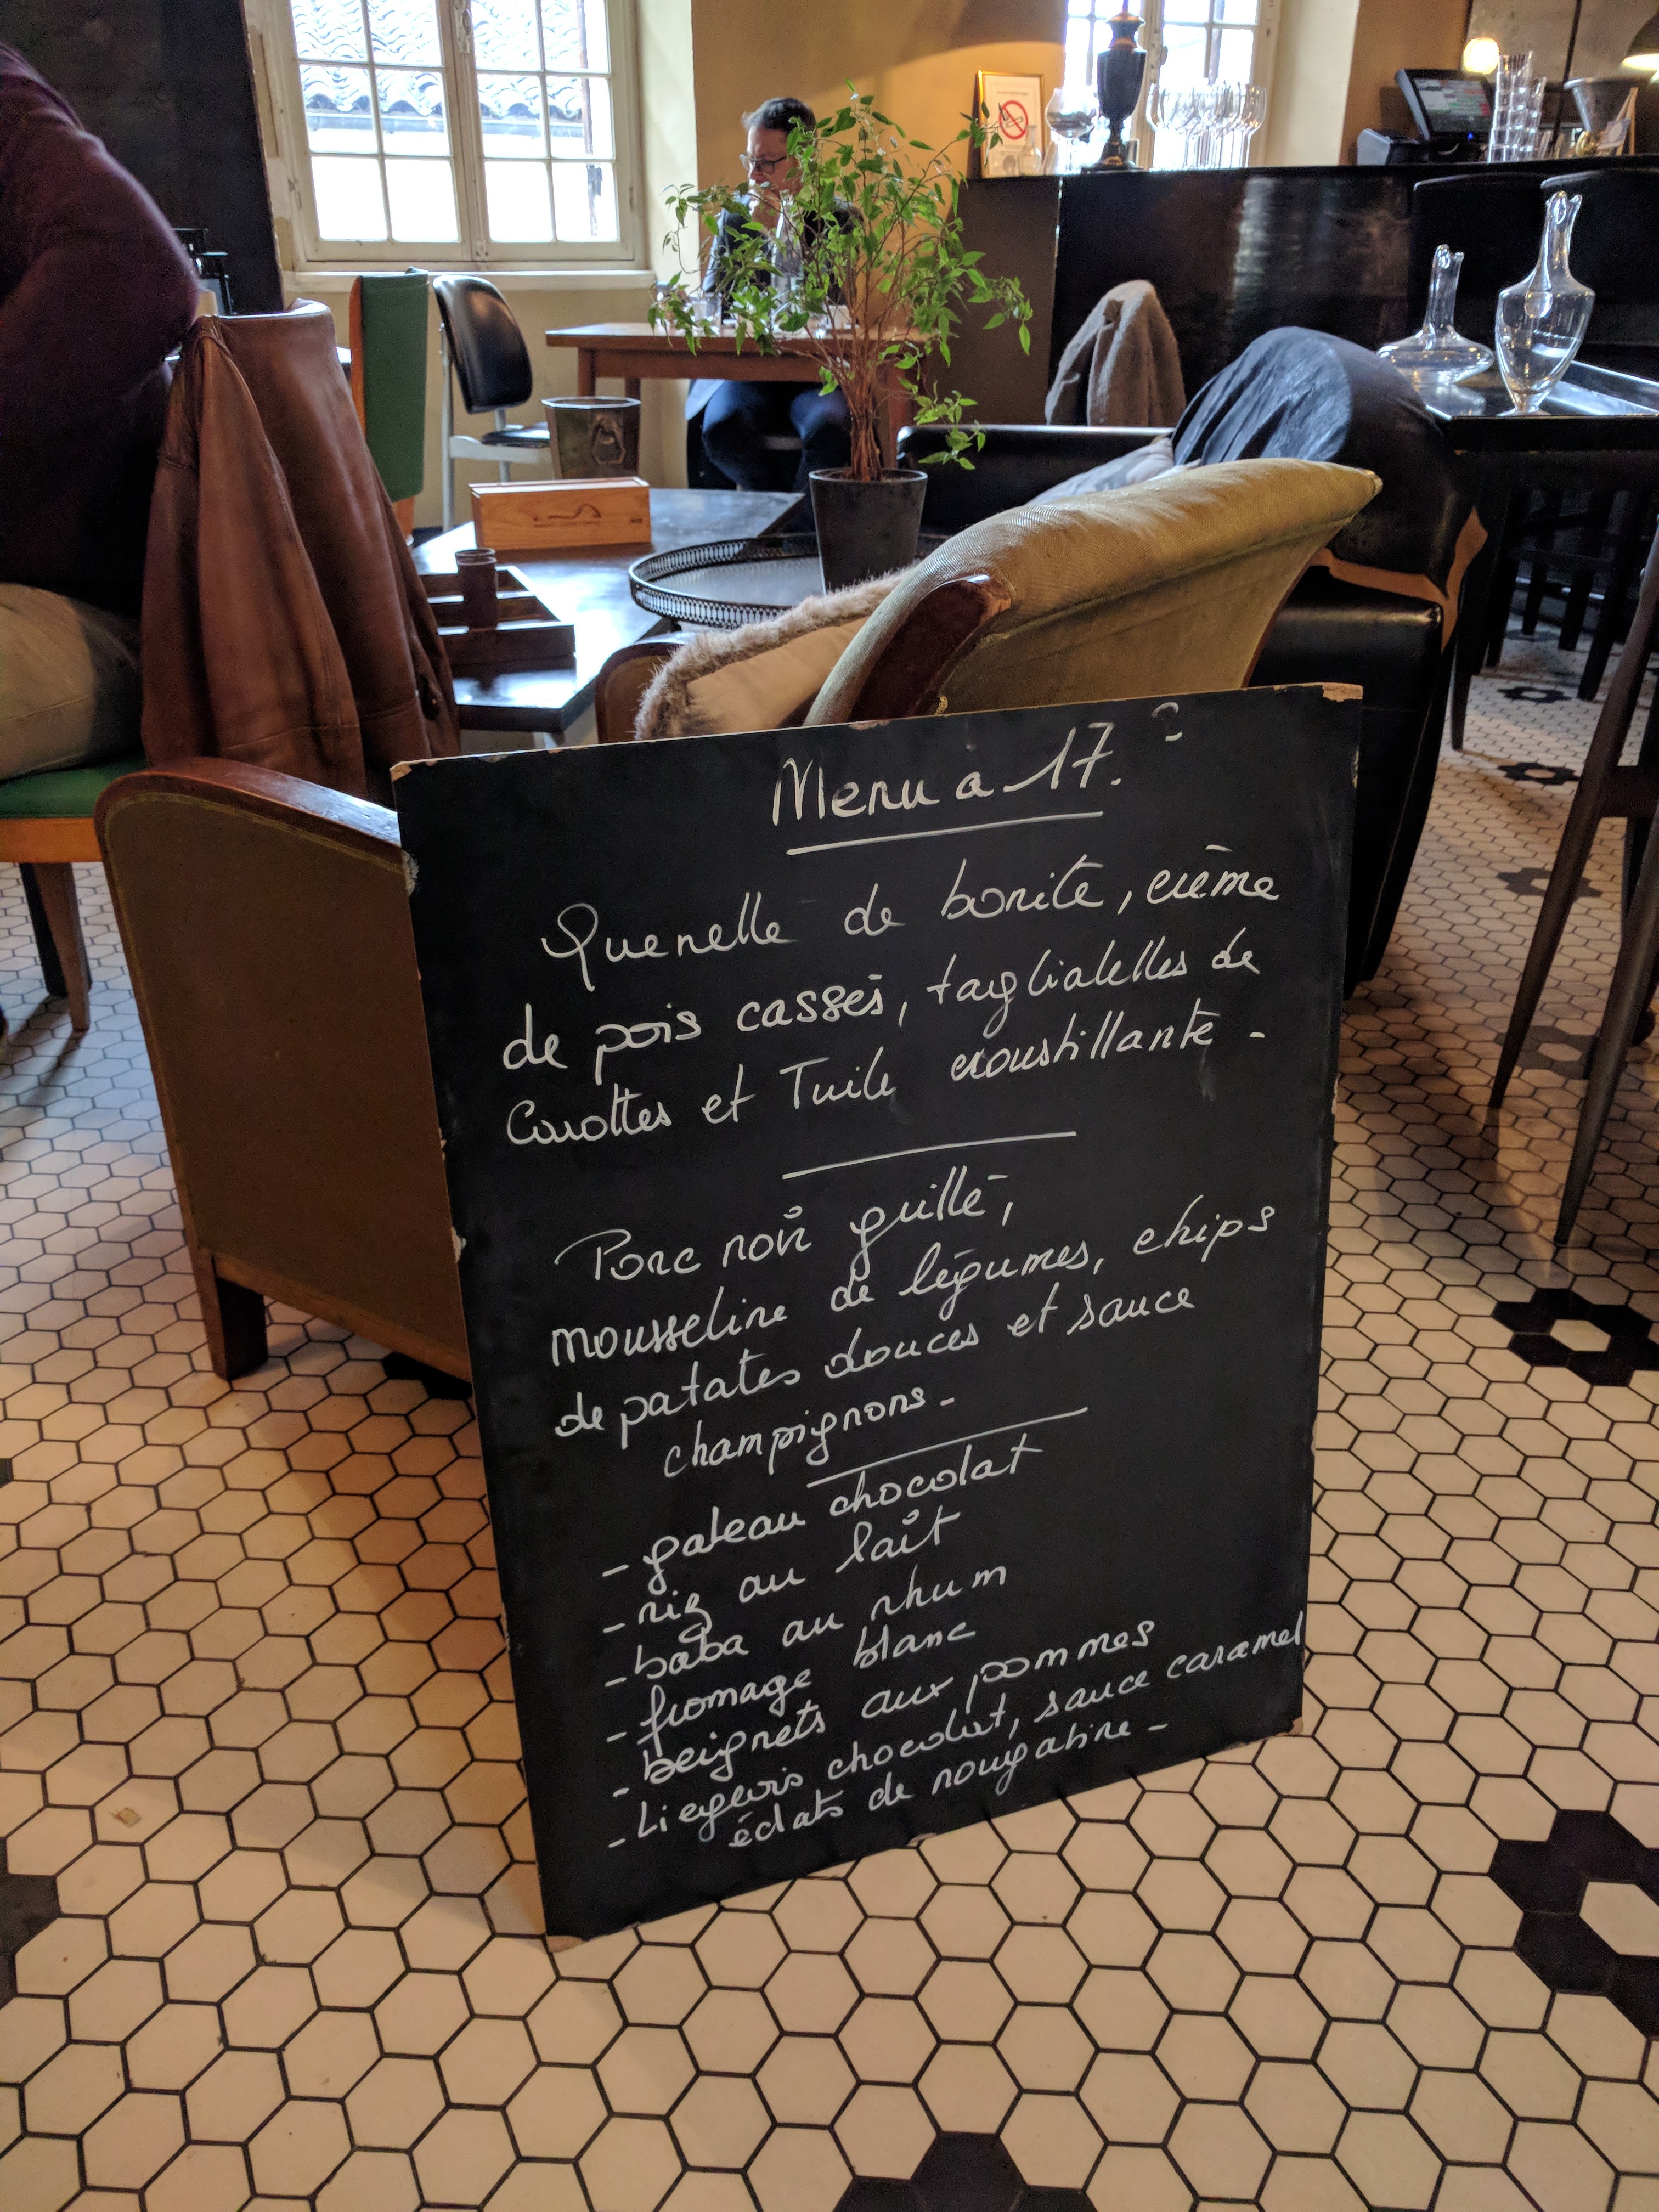 Menu a 17.
Quenelle de bonite, crème
de pois cassés, tagliatelles de
Carottes et Tuile croustillante -
Porc noir grillé,
mousseline de légumes, chips
de patates douces et sauce
champignons -
- gateau chocolat
- riz au lait
- baba au rhum
- fromage blanc
- beignets aux pommes
- Liegeois chocolat, sauce caramel
éclats de nougatine -